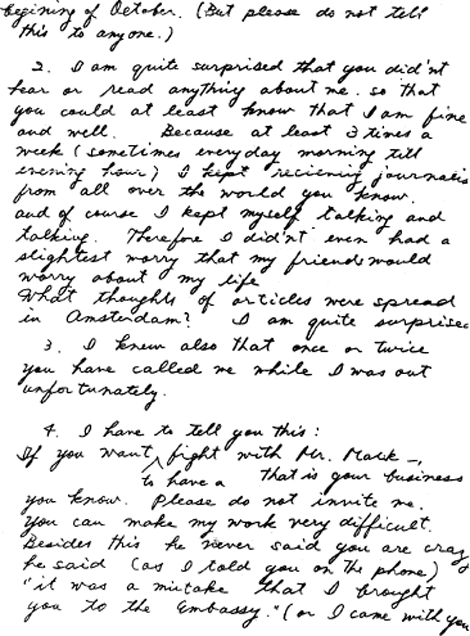 begining of October. (But please do not tell
this to anyone.)
2. I am quite surprised that you did'nt
hear or read anything about me. so that
you could at least know that I am fine
and well. Because at least 3 times a
week (sometimes everyday morning till
evening hour) I kept recieving journalis
from all over the world you know.
and of course I kept myself talking and
talking. Therefore I didn't even had a
slightest worry that my friends would
worry about my life
What thoughts of articles were spread
in Amsterdam? I am quite surprised
3. I knew also that once or twice
you have called me while I was out
unfortunately.
4. I have to tell you this:
If you want fight with Mr. Mack —,
to have a that is your business
you know. Please do not invite me.
You can make my work very difficult.
Besides this he never said you are crazy
he said (as I told you on the phone)
"it was a mistake that I brought
you to the Embassy." (or I came with you